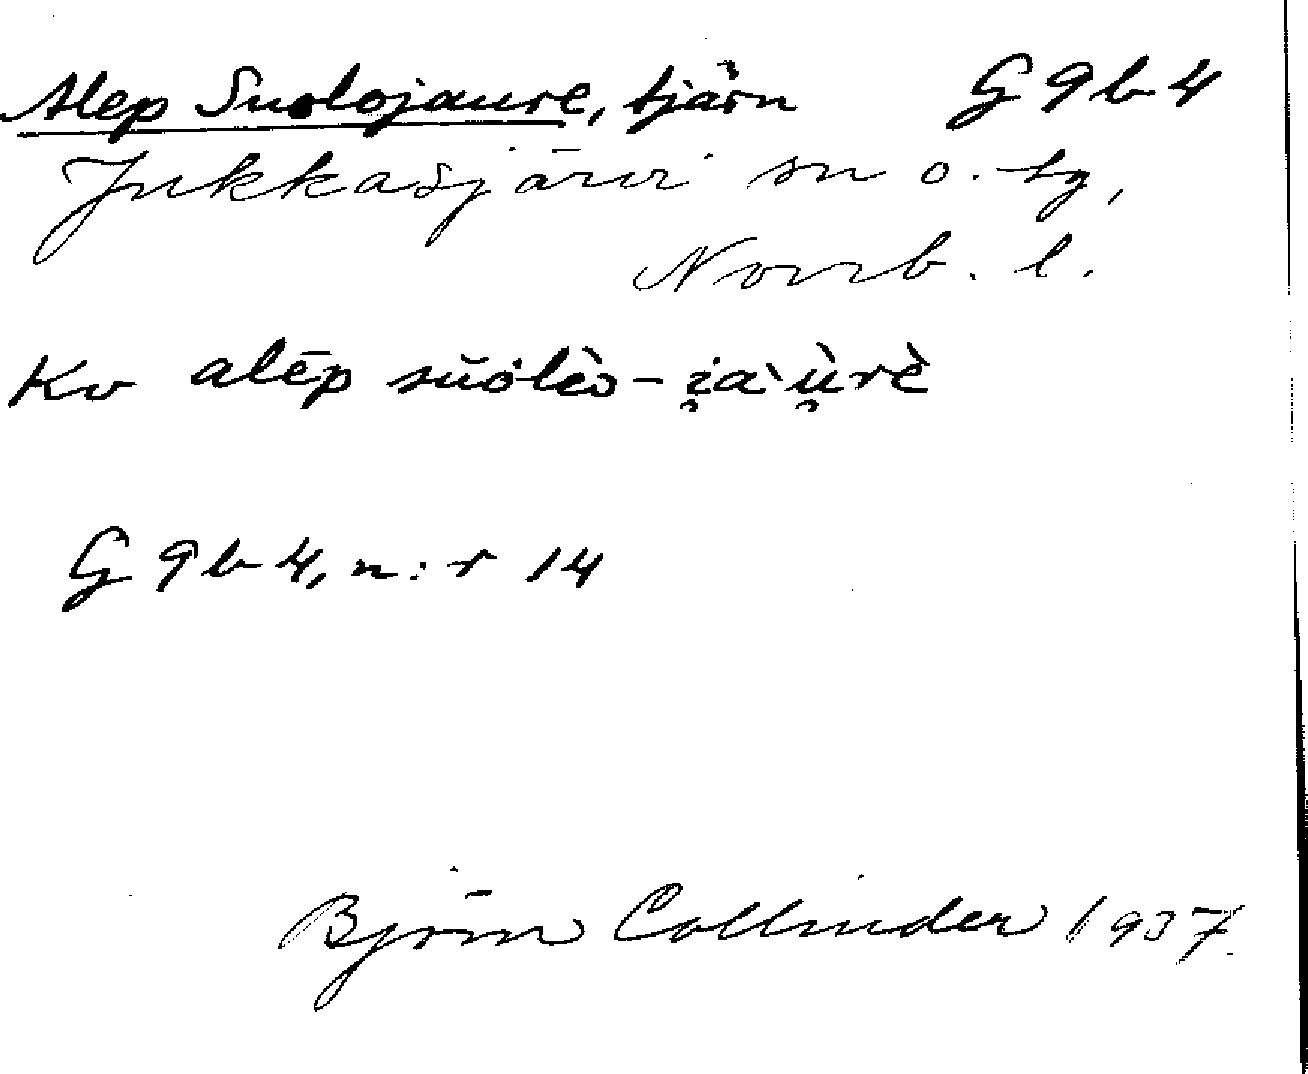 Alep Suolojaure, tjärn G 9 b 4
Jukkasjärvi sn o. tg,
Norrb. l.
Kv alēp sŭólès-i̯àu̯̇rè
G 9 b 4, n:r 14
Björn Collinder 1937.